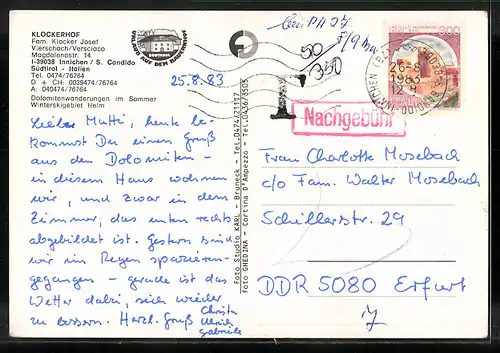 KLOCKERHOF
Fam. Klocker Josef
Vierschach/Versciaco
Magdalenenstr. 14
I-39038 Innichen / S. Candido
Südtirol - Italien
Tel. 0474/76764
D + CH: 0039474/76764
A: 040474/76764
Dolomitenwanderungen im Sommer
Winterskigebiet Helm
URLAUB AUF DEM BAUERNHOF
25.8.83
Lieber Mutti, heute be-
kommst Du einen Gruß
aus den Dolomiten -
in diesem Haus wohnen
wir, und zwar in dem
Zimmer, das unten rechts
abgebildet ist. Gestern sind
wir im Regen spazieren-
gegangen - gerade ist das
Wetter dabei, sich wieder
zu bessern. Herzl. Gruß Christa
Ulrich
Gabriele
Foto Studio KARL - Bruneck - Tel. 0474/21117
Foto GHEDINA - Cortina D'Ampezzo - Tel. 0436/3503
50
350
T
300
26-8
1983
12
Nachgebühr
Frau Charlotte Mosebach
c/o Fam. Walter Mosebach
Schillerstr. 29
DDR 5080 Erfurt